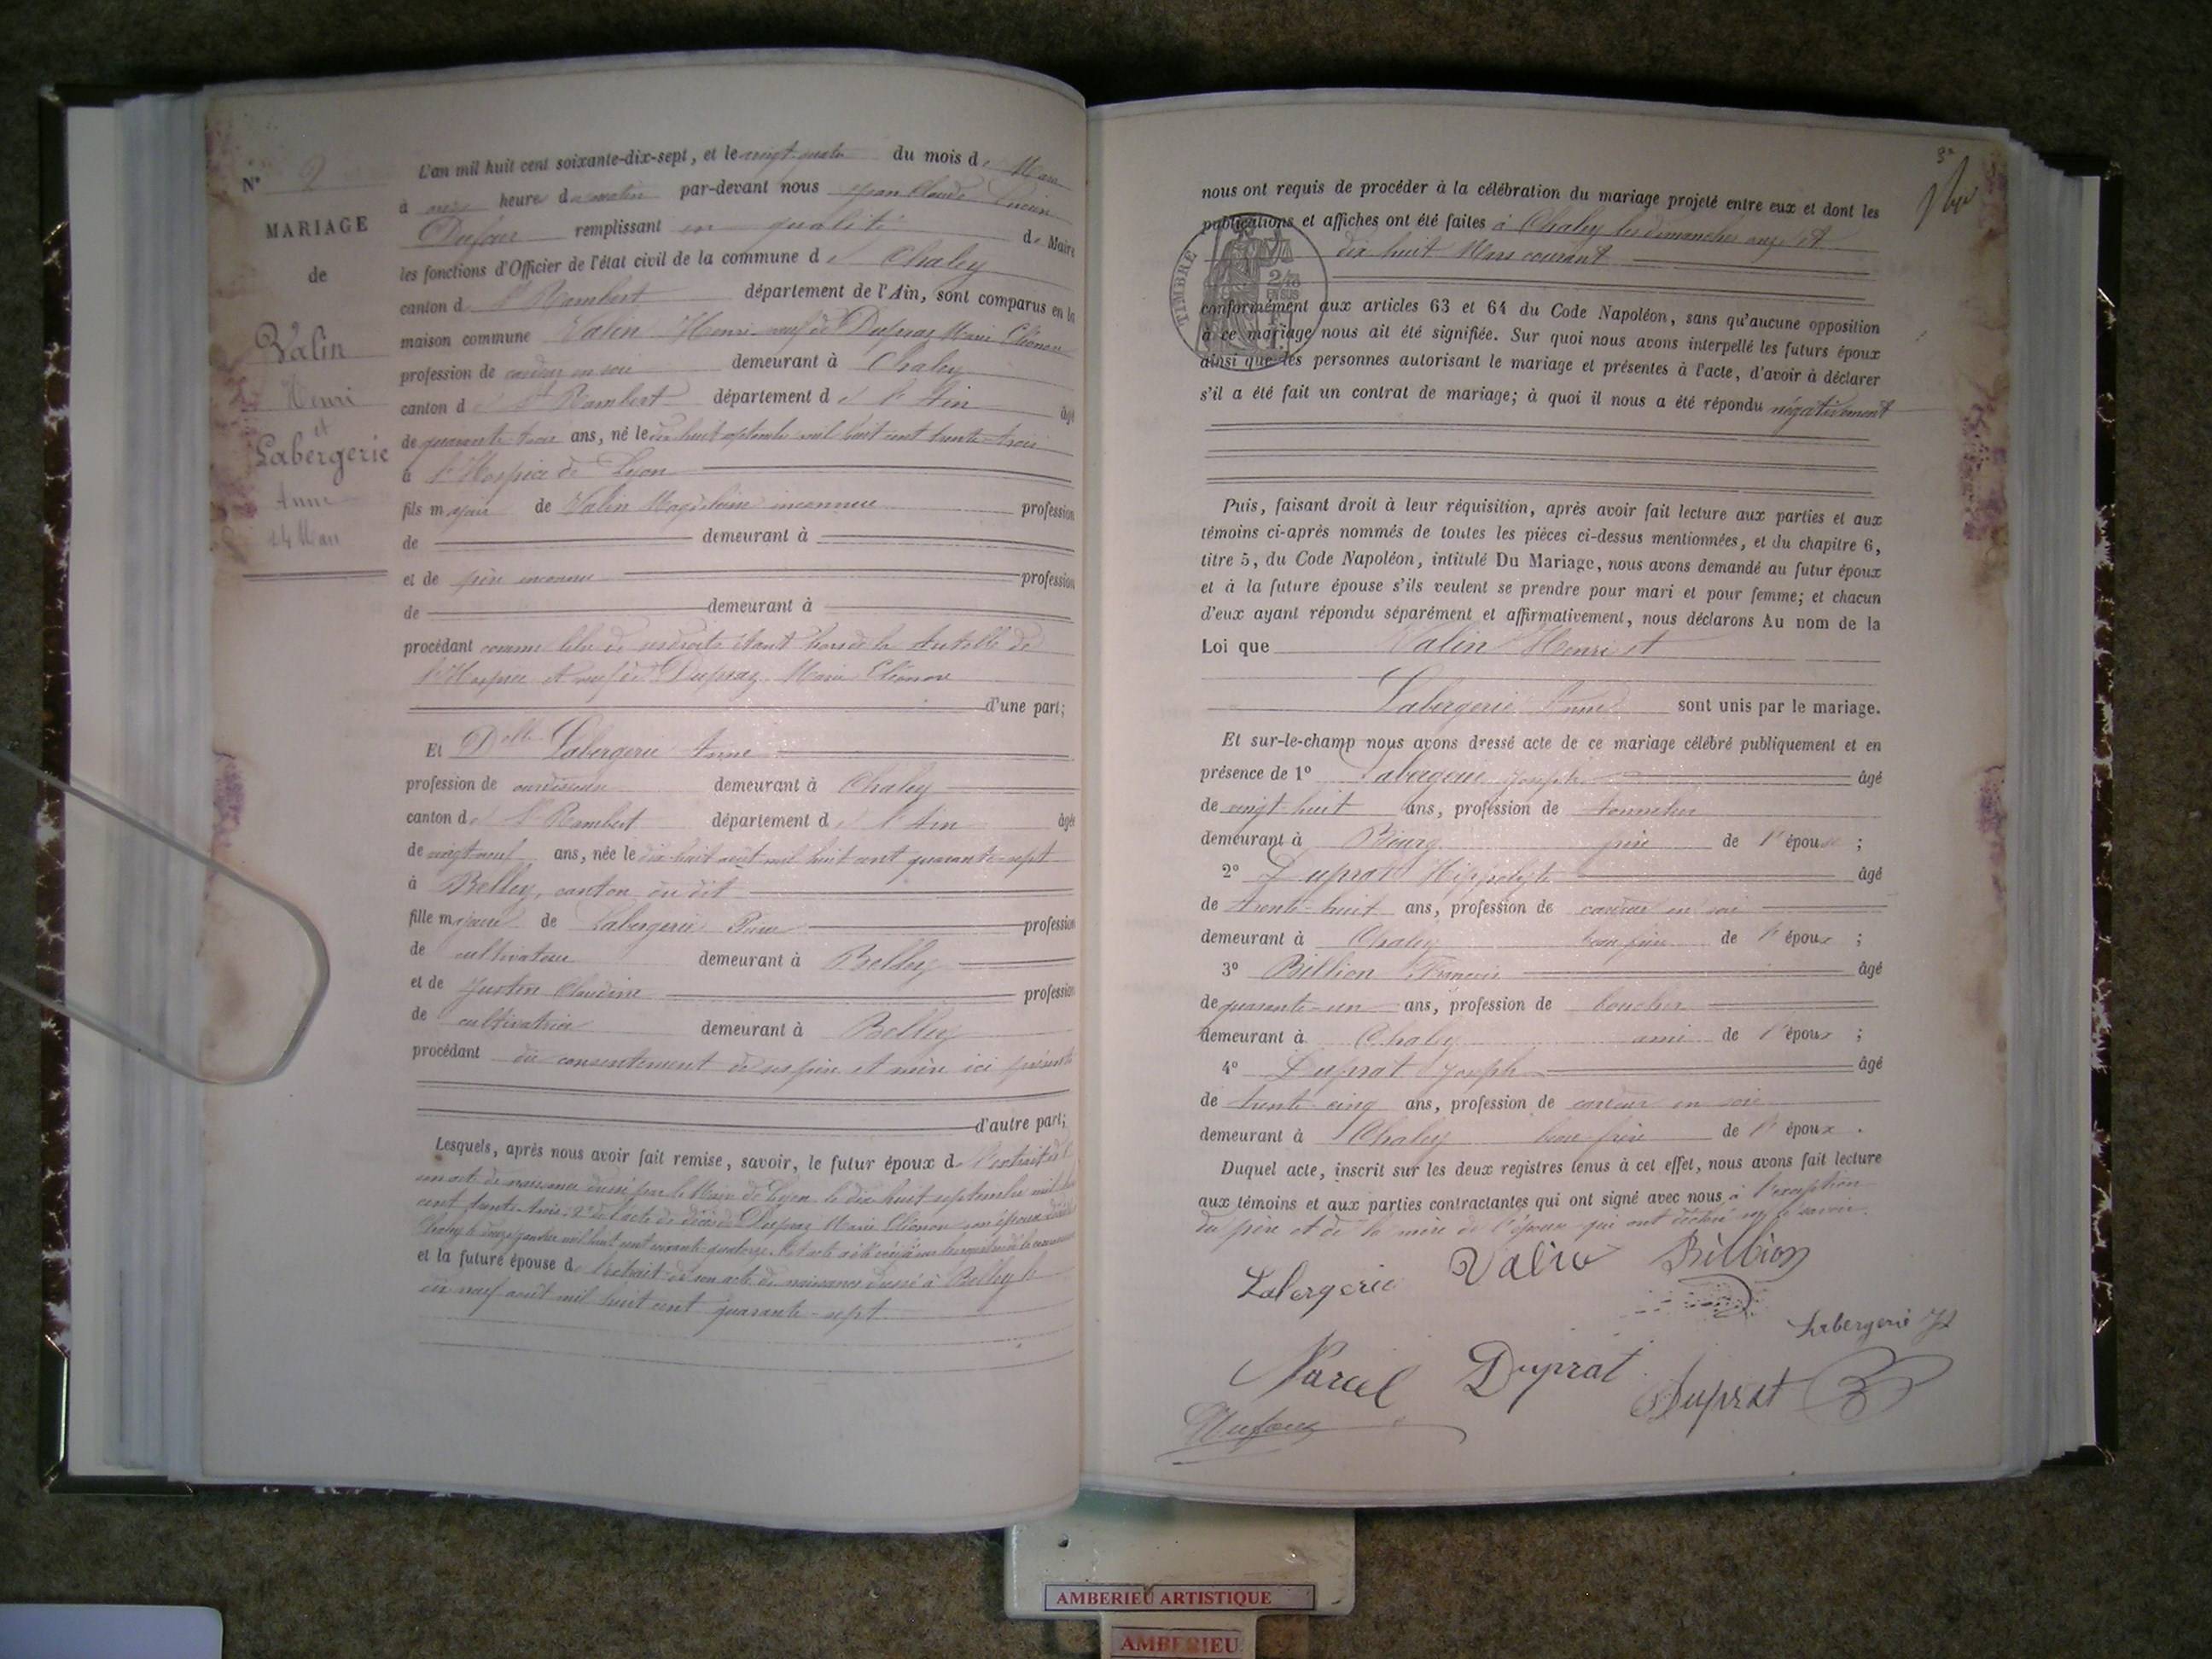 N° 2
MARIAGE
de
Valin
Henri
et
Labergerie
Anne
24 Mars
L'an mil huit cent soixante-dix-sept, et le vingt-quatre du mois de Mars
à onze heure du matin par-devant nous Jean Claude Lucien
Dufour remplissant en qualité de Maire
les fonctions d'Officier de l'état civil de la commune de Chaley
canton de St Rambert département de l'Ain, sont comparus en la
maison commune Valin Henri veuf de Dupraz Marie Eléonore
profession de cardeur en soie demeurant à Chaley
canton de St Rambert département de l'Ain âgé
de quarante trois ans, né le dix huit septembre mil huit cent trente-trois
à l'Hospice de Lyon
fils majeur de Valin Magdeleine inconnue profession
de demeurant à
et de père inconnu profession
de demeurant à
procédant comme libre de ses droits étant hors de la tutelle de
l'Hospice et veuf de Dupraz Marie Eléonore
d'une part;
Et Delle Labergerie Anne
profession de ourdisseuse demeurant à Chaley
canton de St Rambert département de l'Ain âgée
de vingt neuf ans, née le dix-huit août mil huit cent quarante-sept
à Belley, canton du dit
fille majeure de Labergerie Pierre profession
de cultivateur demeurant à Belley
et de Justin Claudine profession
de cultivatrice demeurant à Belley
procédant du consentement de ses père et mère ici présents
d'autre part;
Lesquels, après nous avoir fait remise, savoir, le futur époux de l'extrait de
son acte de naissance dressé par le Maire de Lyon le dix huit septembre mil huit
cent trente-trois; 2° de l'acte de décès de Dupraz Marie Eléonore son épouse décédée
Chaley le douze janvier mil huit cent soixante-quatorze
et la future épouse de l'extrait de son acte de naissance dressé à Belley le
dix neuf août mil huit cent quarante-sept
3
nous ont requis de procéder à la célébration du mariage projeté entre eux et dont les
publications et affiches ont été faites à Chaley les dimanches onze et
dix huit Mars courant
TIMBRE
2/10
EN SUS
conformément aux articles 63 et 64 du Code Napoléon, sans qu'aucune opposition
à ce mariage nous ait été signifiée. Sur quoi nous avons interpellé les futurs époux
ainsi que les personnes autorisant le mariage et présentes à l'acte, d'avoir à déclarer
s'il a été fait un contrat de mariage; à quoi il nous a été répondu négativement
Puis, faisant droit à leur réquisition, après avoir fait lecture aux parties et aux
témoins ci-après nommés de toutes les pièces ci-dessus mentionnées, et du chapitre 6,
titre 5, du Code Napoléon, intitulé Du Mariage, nous avons demandé au futur époux
et à la future épouse s'ils veulent se prendre pour mari et pour femme; et chacun
d'eux ayant répondu séparément et affirmativement, nous déclarons Au nom de la
Loi que Valin Henri et
Labergerie Anne sont unis par le mariage.
Et sur-le-champ nous avons dressé acte de ce mariage célébré publiquement et en
présence de 1° Labergerie Joseph âgé
de vingt-huit ans, profession de tonnelier
demeurant à Bourg frère de l'épouse ;
2° Duprat Hippolyte âgé
de trente-huit ans, profession de cardeur en soie
demeurant à Chaley beau frère de l'époux ;
3° Billion François âgé
de quarante-un ans, profession de boucher
demeurant à Chaley ami de l'époux ;
4° Duprat Joseph âgé
de trente cinq ans, profession de cardeur en soie
demeurant à Chaley beau frère de l'époux .
Duquel acte, inscrit sur les deux registres tenus à cet effet, nous avons fait lecture
aux témoins et aux parties contractantes qui ont signé avec nous à l'exception
du père et de la mère de l'épouse qui ont déclaré ne le savoir.
Labergerie Valin Billion
Labergerie Jh
Marcel Duprat Duprat
Dufour
AMBERIEU ARTISTIQUE
AMBERIEU